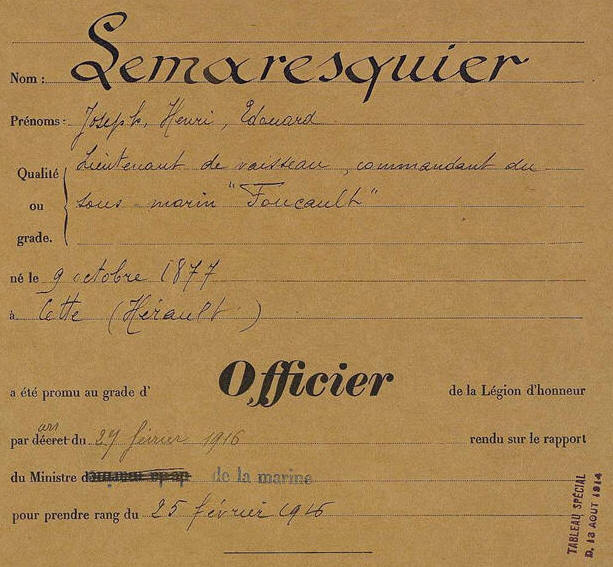 Nom : Lemaresquier
Prénoms : Joseph, Henri, Edouard
Qualité ou grade. { Lieutenant de vaisseau, commandant du
sous-marin "Foucault"
né le 9 octobre 1877
à Cette (Hérault)
a été promu au grade d' Officier de la Légion d'honneur
par décret du 27 février 1916 rendu sur le rapport
du Ministre de la marine
pour prendre rang du 25 février 1916
TABLEAU SPÉCIAL
D. 13 AOUT 1914